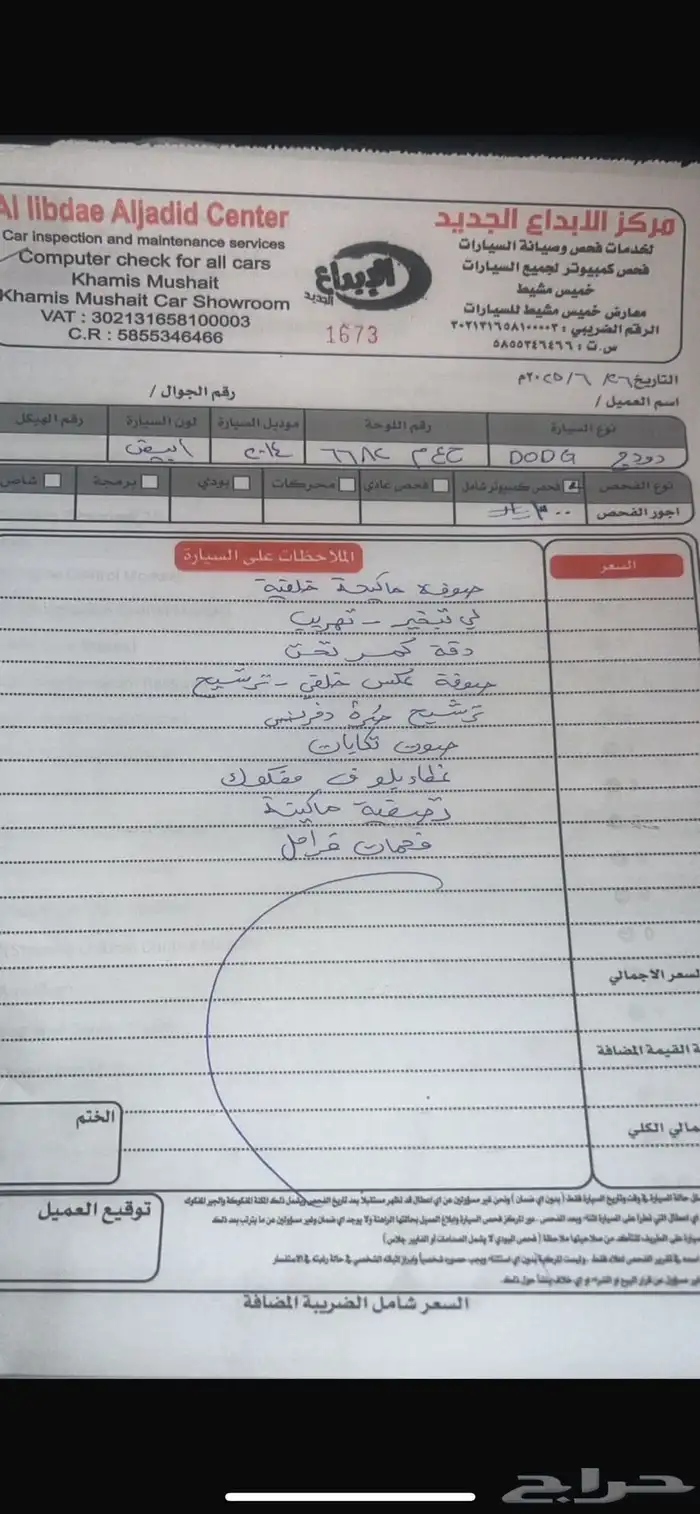 Al Iibdae Aljadid Center
Car inspection and maintenance services
Computer check for all cars
Khamis Mushait
Khamis Mushait Car Showroom
VAT : 302131658100003
C.R : 5855346466
الإبداع
الجديد
1673
مركز الابداع الجديد
لخدمات فحص وصيانة السيارات
فحص كمبيوتر لجميع السيارات
خميس مشيط
معارض خميس مشيط للسيارات
الرقم الضريبي : ٣٠٢١٣١٦٥٨١٠٠٠٠٣
س.ت : ٥٨٥٥٣٤٦٤٦٦
التاريخ ٢٦ / ٦ / ٢٠٢٥م
اسم العميل / رقم الجوال /
نوع السيارة رقم اللوحة موديل السيارة لون السيارة رقم الهيكل
دودج DODG ح ع م ٦٦٨٢ ٢٠١٤ ابيض
نوع الفحص فحص كمبيوتر شامل فحص عادي محركات بودي برمجة شاص
اجور الفحص ٣٠٠ ريال
السعر الملاحظات على السيارة
صوفة ماكينة خلفية
لي تبخير - تهريب
دقة كمر تحت
صوفة عكس خلفي - ترشيح
ترشيح صرة دفرنس
صوت تكايات
غطاء بلوف مفكوك
تصفية ماكينة
فحمات فرامل
السعر الاجمالي
ة القيمة المضافة
مالي الكلي
الختم
توقيع العميل
السعر شامل الضريبة المضافة
حراج